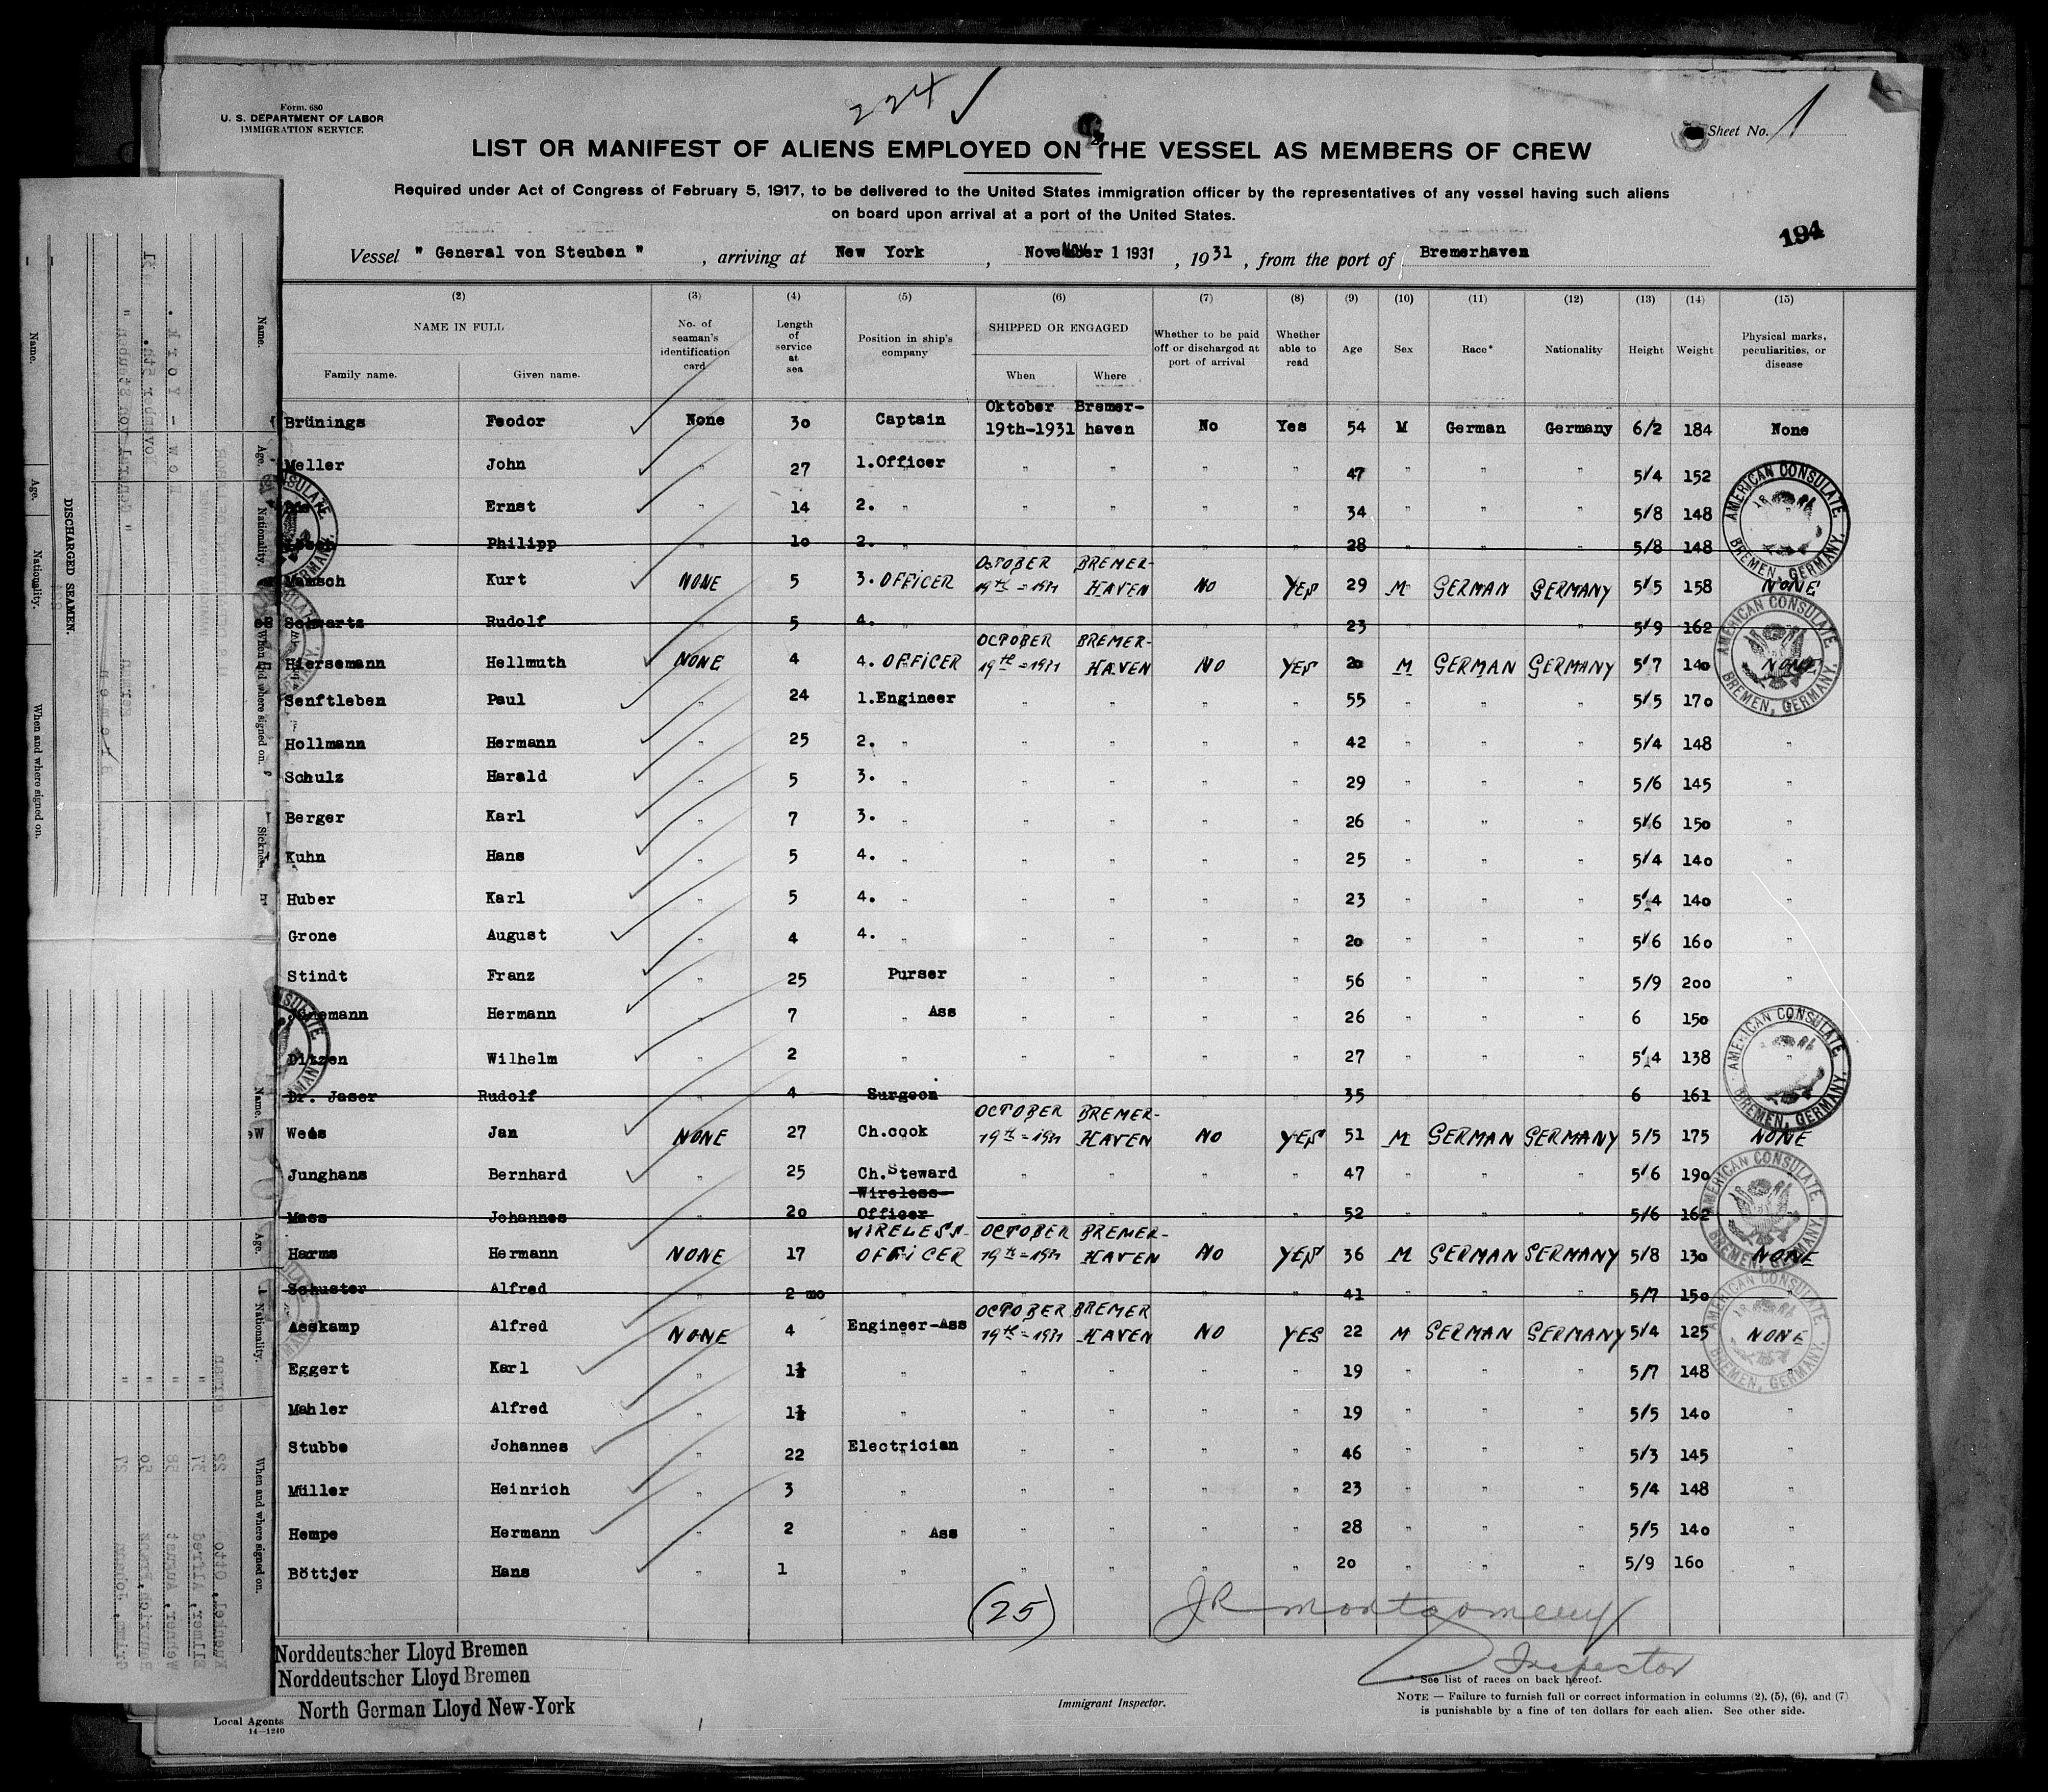 224 ✓
Form. 680
U. S. DEPARTMENT OF LABOR
IMMIGRATION SERVICE
Sheet No. 1
LIST OR MANIFEST OF ALIENS EMPLOYED ON THE VESSEL AS MEMBERS OF CREW
Required under Act of Congress of February 5, 1917, to be delivered to the United States immigration officer by the representatives of any vessel having such aliens
on board upon arrival at a port of the United States.
194
Vessel " General von Steuben " , arriving at New York , November 1 1931 , 1931 , from the port of Bremerhaven
(2) (3) (4) (5) (6) (7) (8) (9) (10) (11) (12) (13) (14) (15)
NAME IN FULL No. of seaman's identification card Length of service at sea Position in ship's company SHIPPED OR ENGAGED Whether to be paid off or discharged at port of arrival Whether able to read Age Sex Race* Nationality Height Weight Physical marks, peculiarities, or disease
Family name. Given name. When Where
Brünings Feodor None 30 Captain Oktober 19th-1931 Bremer-haven No Yes 54 M German Germany 6/2 184 None
Meller John " 27 1.Officer " " " " 47 " " " 5/4 152
Ernst " 14 2. " " " " " 34 " " " 5/8 148
Philipp " 10 2. " " " " " 28 " " " 5/8 148
Mamsch Kurt NONE 5 3. OFFICER OCTOBER 19th=1931 BREMER-HAVEN NO YES 29 M GERMAN GERMANY 5/5 158 NONE
Schwartz Rudolf " 5 4. " " " " " 23 " " " 5/9 162
Hiersemann Hellmuth NONE 4 4. OFFICER OCTOBER 19th=1931 BREMER-HAVEN NO YES 20 M GERMAN GERMANY 5/7 140 NONE
Senftleben Paul " 24 1.Engineer " " " " 55 " " " 5/5 170 "
Hollmann Hermann " 25 2. " " " " " 42 " " " 5/4 148 "
Schulz Harald " 5 3. " " " " " 29 " " " 5/6 145 "
Berger Karl " 7 3. " " " " " 26 " " " 5/6 150 "
Kuhn Hans " 5 4. " " " " " 25 " " " 5/4 140 "
Huber Karl " 5 4. " " " " " 23 " " " 5/4 140 "
Grone August " 4 4. " " " " " 20 " " " 5/6 160 "
Stindt Franz " 25 Purser " " " " 56 " " " 5/9 200 "
Jünemann Hermann " 7 " Ass " " " " 26 " " " 6 150
Ditzen Wilhelm " 2 " " " " " 27 " " " 5/4 138 "
Dr. Jaser Rudolf " 4 Surgeon " " " " 35 " " " 6 161
Weis Jan NONE 27 Ch.cook OCTOBER 19th=1931 BREMER-HAVEN NO YES 51 M GERMAN GERMANY 5/5 175 NONE
Junghans Bernhard " 25 Ch.Steward " " " " 47 " " " 5/6 190 "
Mass Johannes " 20 Wireless Officer " " " " 52 " " " 5/6 162
Harms Hermann NONE 17 WIRELESS-OFFICER OCTOBER 19th=1931 BREMER-HAVEN NO YES 36 M GERMAN GERMANY 5/8 130 NONE
Schuster Alfred " 2 mo " " " " " 41 " " " 5/7 150
Asskamp Alfred NONE 4 Engineer-Ass OCTOBER 19th=1931 BREMER HAVEN NO YES 22 M GERMAN GERMANY 5/4 125 NONE
Eggert Karl " 1½ " " " " " 19 " " " 5/7 148 "
Mahler Alfred " 1½ " " " " " 19 " " " 5/5 140 "
Stubbe Johannes " 22 Electrician " " " " 46 " " " 5/3 145 "
Müller Heinrich " 3 " " " " " 23 " " " 5/4 148 "
Hempe Hermann " 2 " Ass " " " " 28 " " " 5/5 140 "
Böttjer Hans " 1 " " " " " 20 " " " 5/9 160 "
AMERICAN CONSULATE, BREMEN, GERMANY.
AMERICAN CONSULATE, BREMEN, GERMANY.
AMERICAN CONSULATE, BREMEN, GERMANY.
AMERICAN CONSULATE, BREMEN, GERMANY.
AMERICAN CONSULATE, BREMEN, GERMANY.
(25)
JR Montgomery
Inspector
Norddeutscher Lloyd Bremen
Norddeutscher Lloyd Bremen
North German Lloyd New-York
Local Agents
14—1240
Immigrant Inspector.
See list of races on back hereof.
NOTE — Failure to furnish full or correct information in columns (2), (5), (6), and (7)
is punishable by a fine of ten dollars for each alien. See other side.
DISCHARGED SEAMEN.
Name. Age. Nationality. When and where signed on.
Name. Age. Nationality. When and where signed on. Sickness
Name. Age. Nationality. When and where signed on.